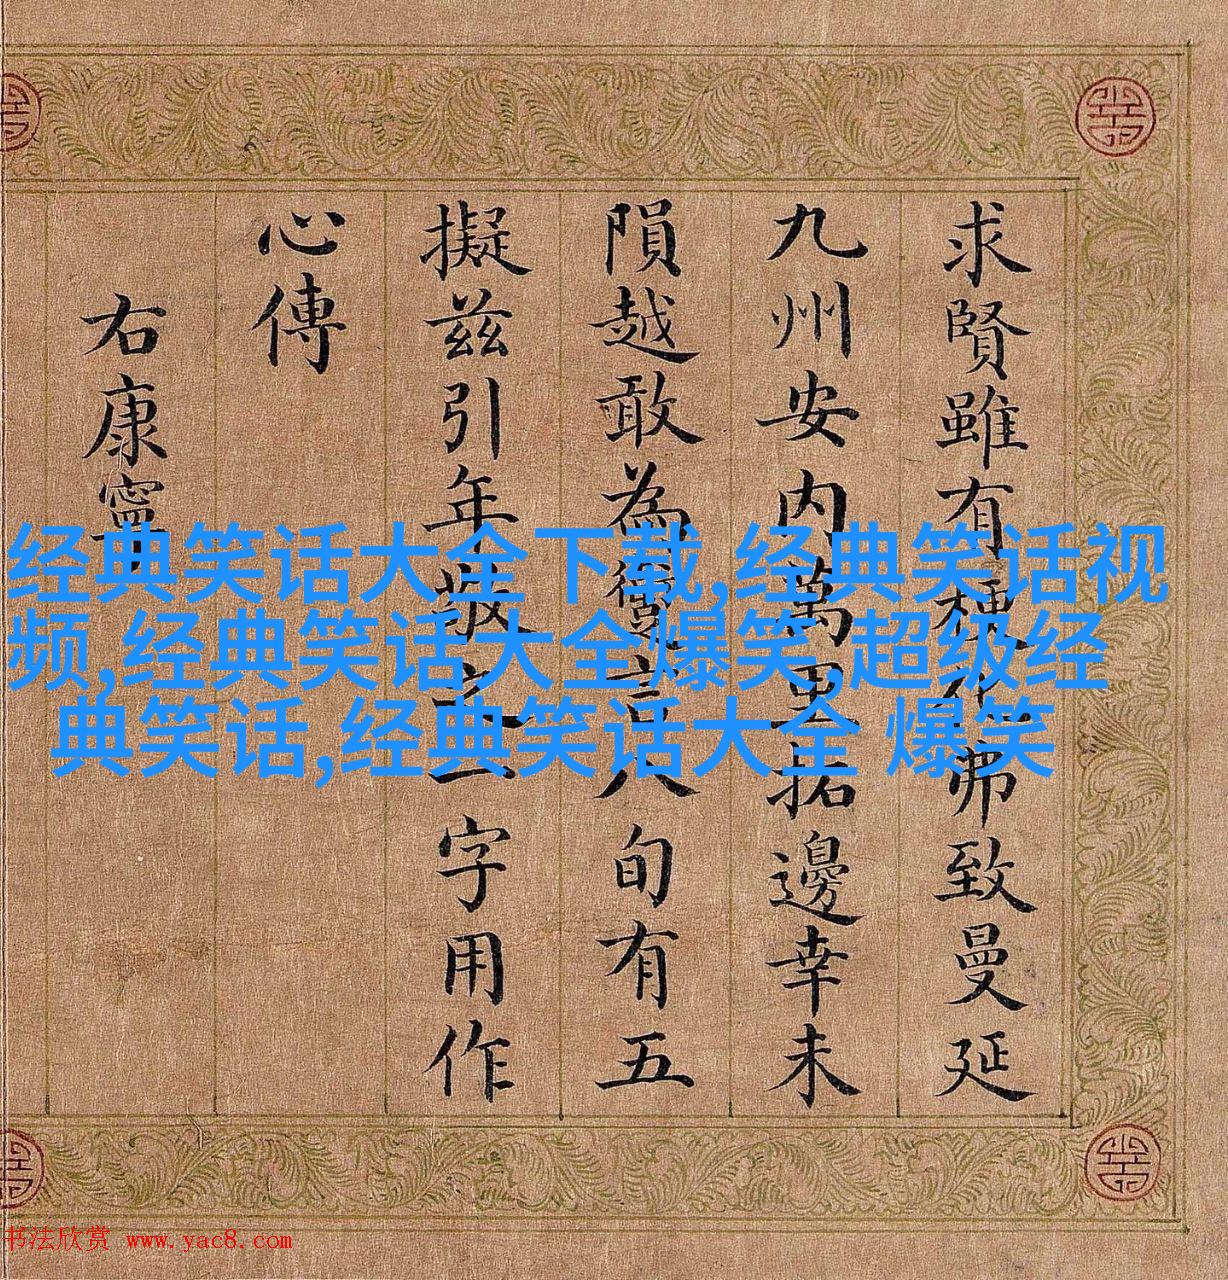 求賢雖有梗化弗致曼延
九州安内萬里拓邊幸未
隕越敢為言八旬有五
擬兹引年敬之一字用作
心傳
右康寧
经典笑话大全下载,经典笑话视
频,经典笑话大全爆笑,超级经
典笑话,经典笑话大全 爆笑
书法欣赏 www.yac8.com